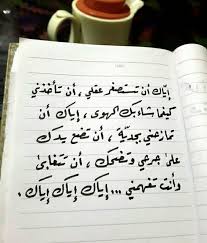 إياك أن تستصغر عقلي ، أن تأخذني
كيفما شاء بك الهوى ، إياك أن
تمازحني بجدية ، أن تضع يدك
على جرحي وتضحك ، أن تتغابى
وأنت تفهمني ... إياك إياك إياك .